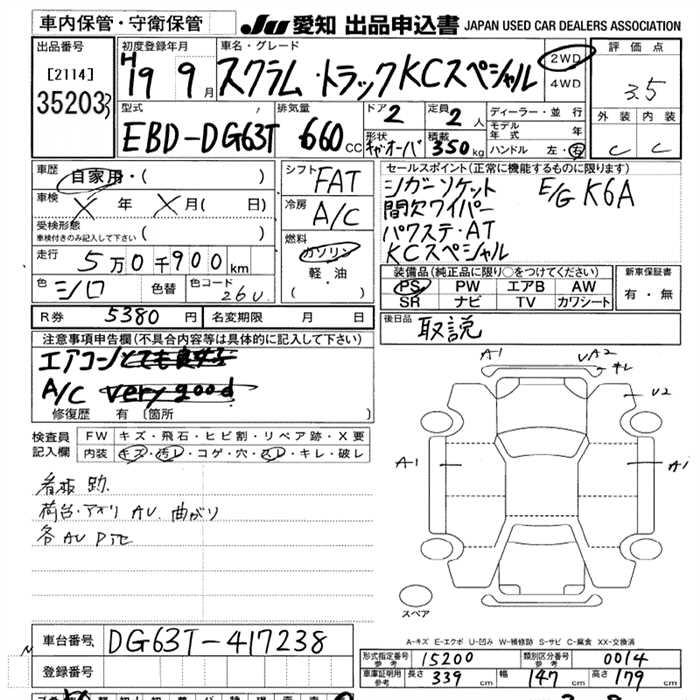 車内保管・守衛保管 JU 愛知 出品申込書 JAPAN USED CAR DEALERS ASSOCIATION
出品番号 初度登録年月 車名・グレード 評価点
[2114] H19 9月 スクラム・トラックKCスペシャル 2WD 3.5
35203 4WD
型式 排気量 ドア 2 定員 2人 ディーラー・並行 外装 内装
EBD-DG63T 660 CC モデル年式 年 C C
形状 キャブオーバ 積載 350kg ハンドル 左・右
車歴 自家用・( ) シフト FAT セールスポイント(正常に機能するものに限ります)
シガーソケット E/G K6A
車検 X年 X月( 日) 冷房 A/C 間欠ワイパー
受検形態 パワステ・AT
車検付きのみ記入して下さい ( ) 燃料 KCスペシャル
走行 5万0千900km ガソリン 装備品(純正品に限り○をつけてください) 新車保証書
軽・油 PS PW エアB AW 有・無
色 シロ 色替 色コード 26U ( ) SR ナビ TV カワシート
R券 5380円 名変期限 月 日 後日品 取説
注意事項申告欄(不具合内容等は具体的に記入して下さい)
エアコン とても良好
A/C very good
修復歴 有 〔箇所 〕
A1 VA2 キレ
U2
検査員 FW キズ・飛石・ヒビ割・リペア跡・X要
記入欄 内装 キズ・汚レ・コゲ・穴・スレ・キレ・破レ
A1 A1
看板跡
荷台・アオリ AU 曲がり
各AU
スペア
A-キズ E-エクボ U-凹み W-補修跡 S-サビ C-腐食 XX-交換済
車台番号 DG63T-417238
形式指定番号 参考 15200 類別区分番号 参考 0014
登録番号
車庫証明用 参考 長さ 339 cm 幅 147 cm 高さ 179 cm